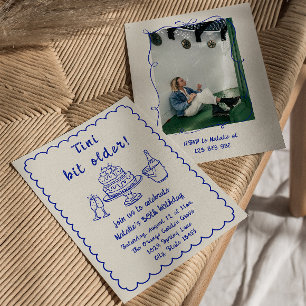 Tini
bit older!
join us to celebrate
Natalie's 30th birthday
Saturday, August 12 at 11am
The Orange Garden Grove
1023 Spring Lane
City, State
RSVP to Natalie at
123 815 982